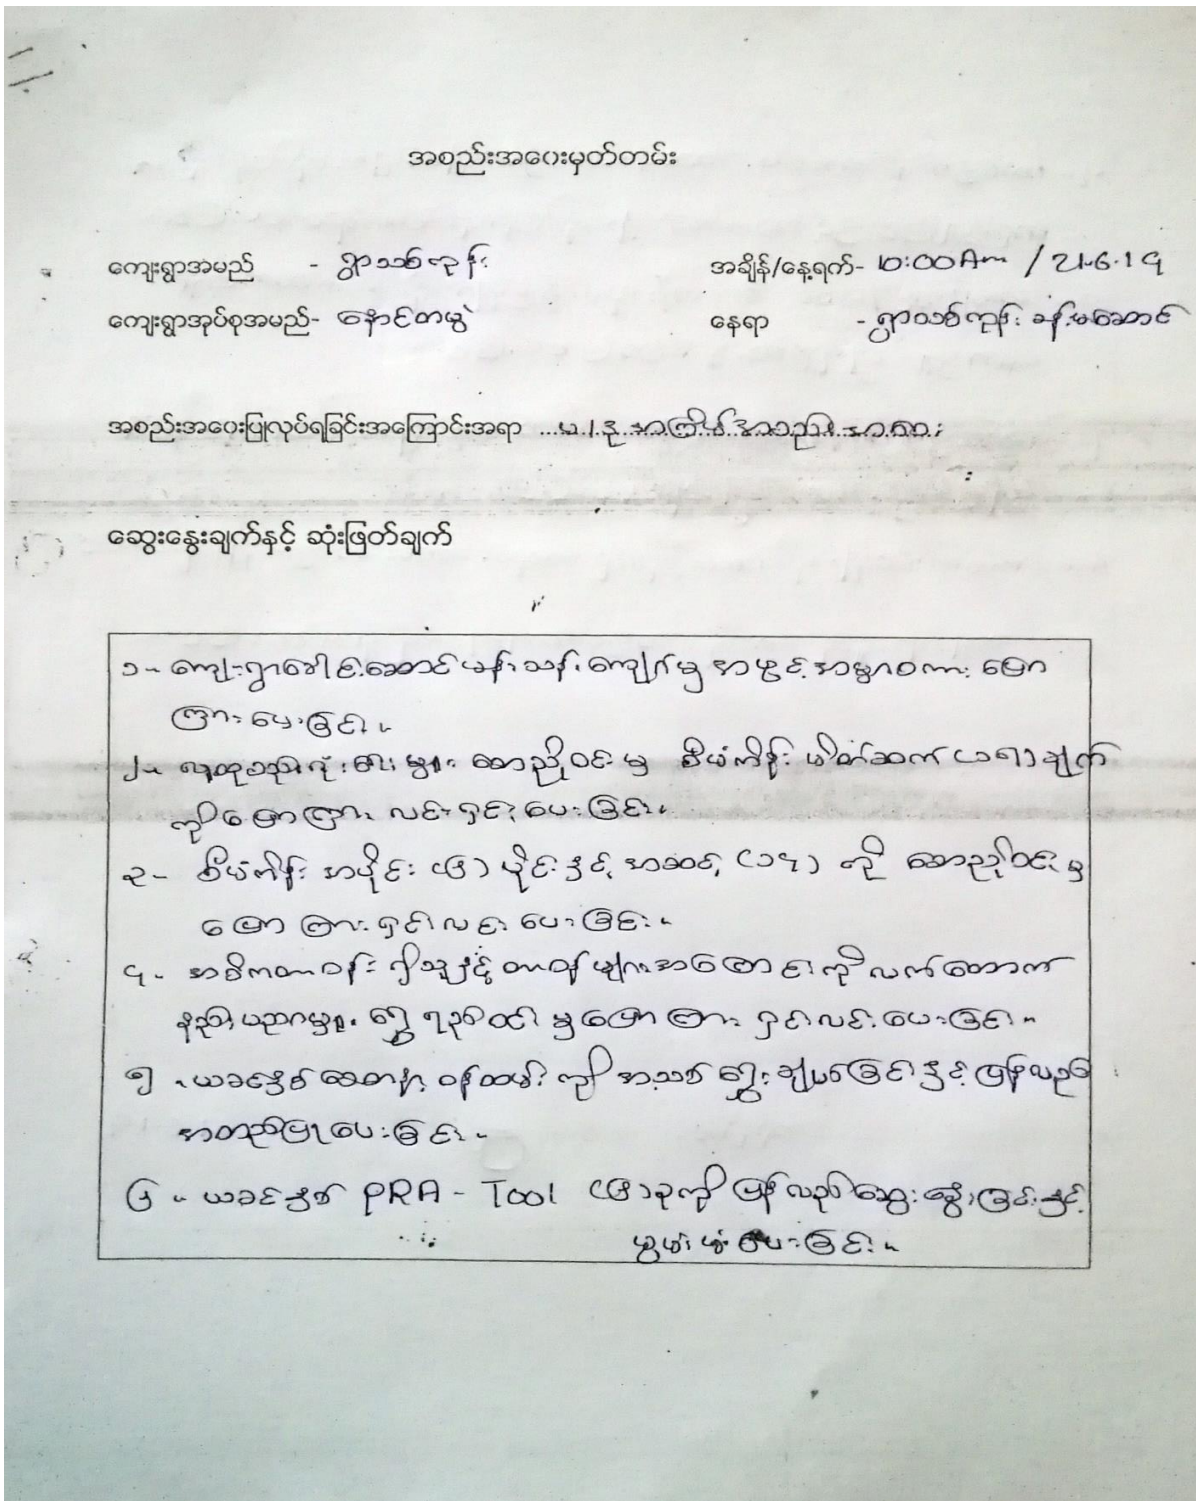 အစည်းအဝေးမှတ်တမ်း
ကျေးရွာအမည် - ရွာသစ်ကုန်း
အချိန်/နေ့ရက်- 10:00Am / 21.6.19
ကျေးရွာအုပ်စုအမည်- နောင်တမွဲ
နေရာ - ရွာသစ်ကုန်း ခန်းမဆောင်
အစည်းအဝေးပြုလုပ်ရခြင်းအကြောင်းအရာ ...ပ/ဒု အကြိမ် အစည်းအဝေး
ဆွေးနွေးချက်နှင့် ဆုံးဖြတ်ချက်
၁။ ကျေးရွာခေါင်းဆောင် မန်းသန်းကျော်မှ အဖွင့်အမှာစကား ပြော
ကြားပေးခြင်း။
၂။ လူထုစည်းရုံးရေးမှူး ဆောညိုဝင်းမှ စီမံကိန်း မိတ်ဆက် (၁၅) ချက်
ကိုပြောကြား လင်းရှင်းပေးခြင်း။
၃- စီမံကိန်း အပိုင်း (၆) ပိုင်းနှင့် အဆင့် (၁၄) ကို ဆောညိုဝင်းမှ
ပြောကြား ရှင်းလင်းပေးခြင်း။
၄- အဓိကတာဝန် ရှိသူနှင့် တာဝန်များအကြောင်းကို လက်ထောက်
နည်းပညာမှူး ရွှေ မှ ပြောကြား ရှင်းလင်းပေးခြင်း။
၅။ ယခင်နှစ် စေတနာ့ ဝန်ထမ်း ကို အသစ် ရွေးချယ်ခြင်းနှင့် ပြန်လည်
အတည်ပြုပေးခြင်း။
၆။ ယခင်နှစ် PRA - Tool (၆) ခုကို ပြန်လည်ဆွေးနွေးခြင်းနှင့်
မွမ်းမံပေးခြင်း။